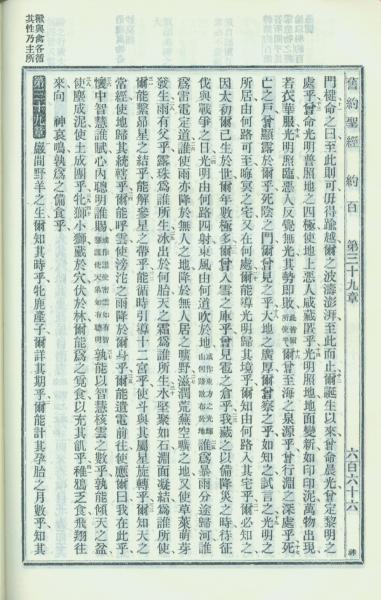 舊約聖經 約百 第三十九章 六百六十六
門楗命之曰至此則可毋得踰越爾之波濤澎湃至此而止爾誕生以來曾命晨光曾定黎明之
處乎曾命光明普照地之四極使地上惡人咸藏匿乎光明照地地面變新如印印泥萬物出現
若衣華服光明照臨惡人反覺無光其勢即敗爾曾至海之泉源乎曾行淵之深處乎死
亡之戶曾顯露於爾乎死陰之門爾曾見之乎大地之廣厚爾曾察之乎如知之試言之光明之
所居由何路可至晦冥之宅又在何處爾能導光明歸其境乎爾知由何路入其宅乎爾必知之
因太初爾已生於世爾年數極多爾曾入雪之庫乎曾見雹之倉乎我藏之以備降災之時待征
伐與戰爭之日光明由何路四射東風由何道吹於地誰爲暴雨分途歸河誰
爲雷電定道誰使雨亦降於無人之地降於無人居之曠野滋潤荒蕪空曠之地又使草萊萌芽
發生雨有父乎露珠爲誰所生冰出於何胎天之霜爲誰所生水堅聚如石淵面凝結爲誰所使
爾能繫昴星之結乎能解參星之帶乎能循時引導十二宮乎使斗與其屬星旋轉乎爾知天之
常經使地歸其統轄乎爾能呼雲使滂沱之雨降於爾身乎爾能遣電前往使應爾曰我在此乎
懷中智慧誰賦心內聰明誰賜孰能以智慧核雲之數乎孰能傾天之盆
使塵成泥使土成團乎牝獅小獅藏於穴伏於林爾能爲之覓食以充其飢乎稚鴉乏食飛翔往
來向 神哀鳴孰爲之備食乎
第三十九章 巖間野羊之生爾知其時乎牝鹿產子爾詳其期乎爾能計其孕胎之月數乎知其
獸與禽各循
其性乃主所